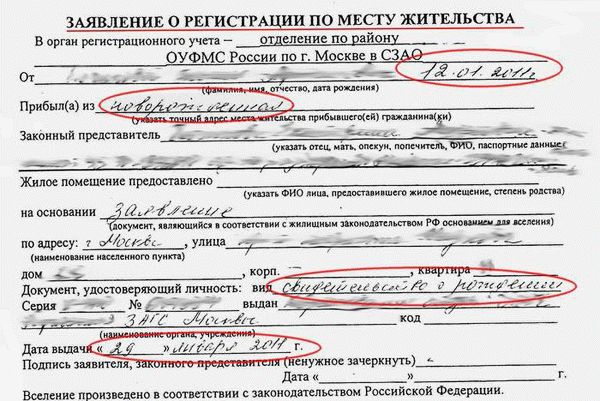 ЗАЯВЛЕНИЕ О РЕГИСТРАЦИИ ПО МЕСТУ ЖИТЕЛЬСТВА
В орган регистрационного учета – отделение по району
ОУФМС России по г. Москве в СЗАО
От 12.01.2011г.
(фамилия, имя, отчество, дата рождения)
Прибыл(а) из новорожденная
(указать точный адрес места жительства прибывшего(ей) гражданина(ки)
Законный представитель
(указать отец, мать, опекун, попечитель, ФИО, паспортные данные)
Жилое помещение предоставлено
(указать ФИО лица, предоставившего жилое помещение, степень родства)
на основании Заявление
(документ, являющийся в соответствии с жилищным законодательством РФ основанием для вселения)
по адресу: г Москва, улица
(наименование населенного пункта)
дом , корп. , квартира
Документ, удостоверяющий личность: вид свидетельство о рождении
Серия № выдан
ЗАГС Москвы код
(наименование органа, учреждения)
Дата выдачи «29» января 2011 г.
Подпись заявителя, законного представителя (ненужное зачеркнуть)
Дата « » г.
Вселение произведено в соответствии с законодательством Российской Федерации.